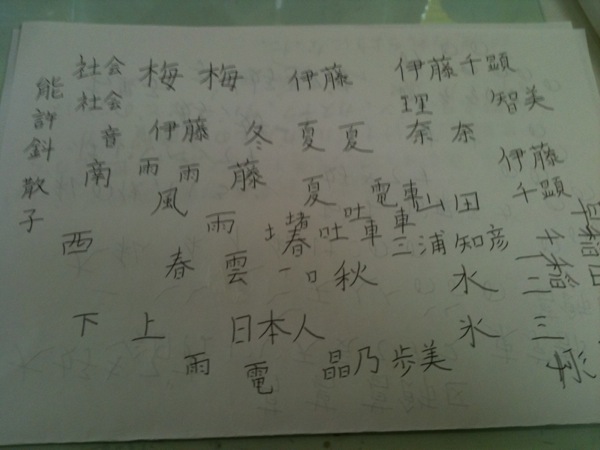 社会 梅 梅 伊藤 伊藤千顕
能許斜散子
社会 理奈 智美
音 伊藤 冬 夏 夏 奈
南 雨 雨 藤 伊藤
風 夏 電車 山田 千顕
雨 吐 車
西 春 吐 車 三浦 知彦 早稲田
春 雲 一口 秋 水 三
下 上 日本人 氷 三
雨 電 晶乃 歩美